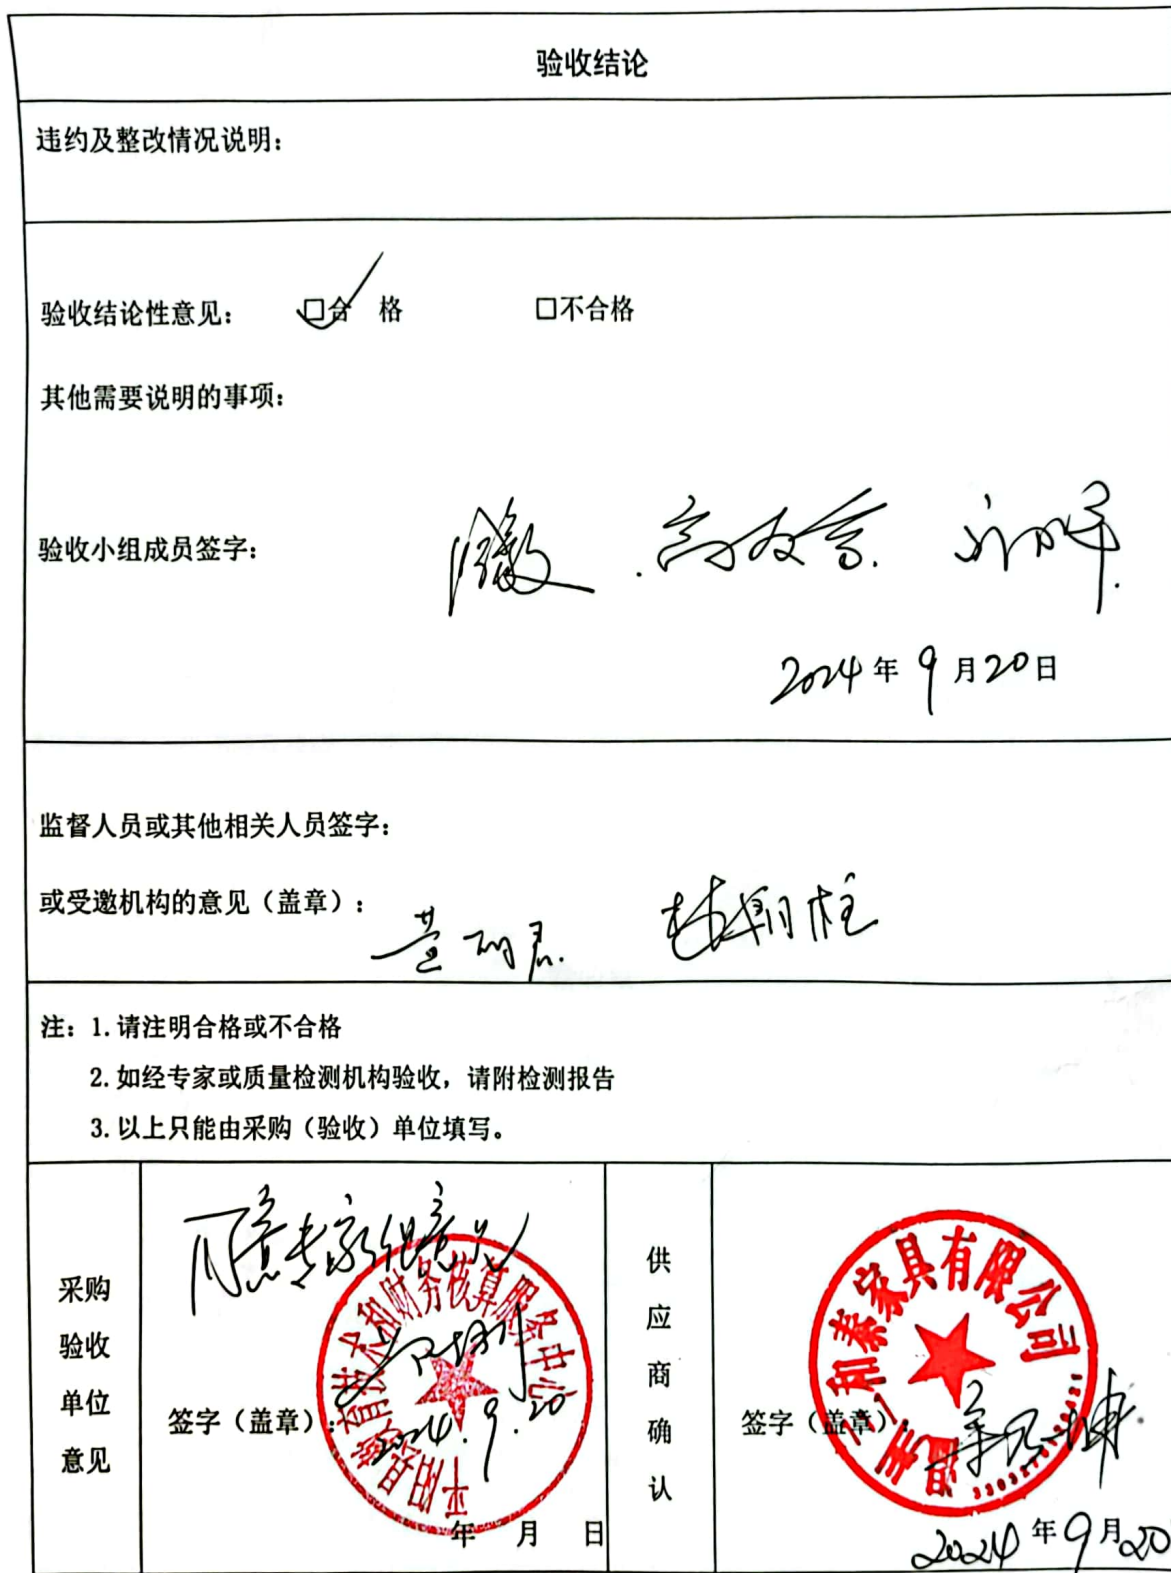 验收结论
违约及整改情况说明：
验收结论性意见： ☑合 格 □不合格
其他需要说明的事项：
验收小组成员签字：
2024年9月20日
监督人员或其他相关人员签字：
或受邀机构的意见（盖章）：
注：1.请注明合格或不合格
2.如经专家或质量检测机构验收，请附检测报告
3.以上只能由采购（验收）单位填写。
采购
验收
单位
意见
同意专家组意见
平阳县教育技术和财务核算服务中心
签字（盖章）：
2024.9.20
年 月 日
供
应
商
确
认
家具有限公司
签字（盖章）
2024年9月20